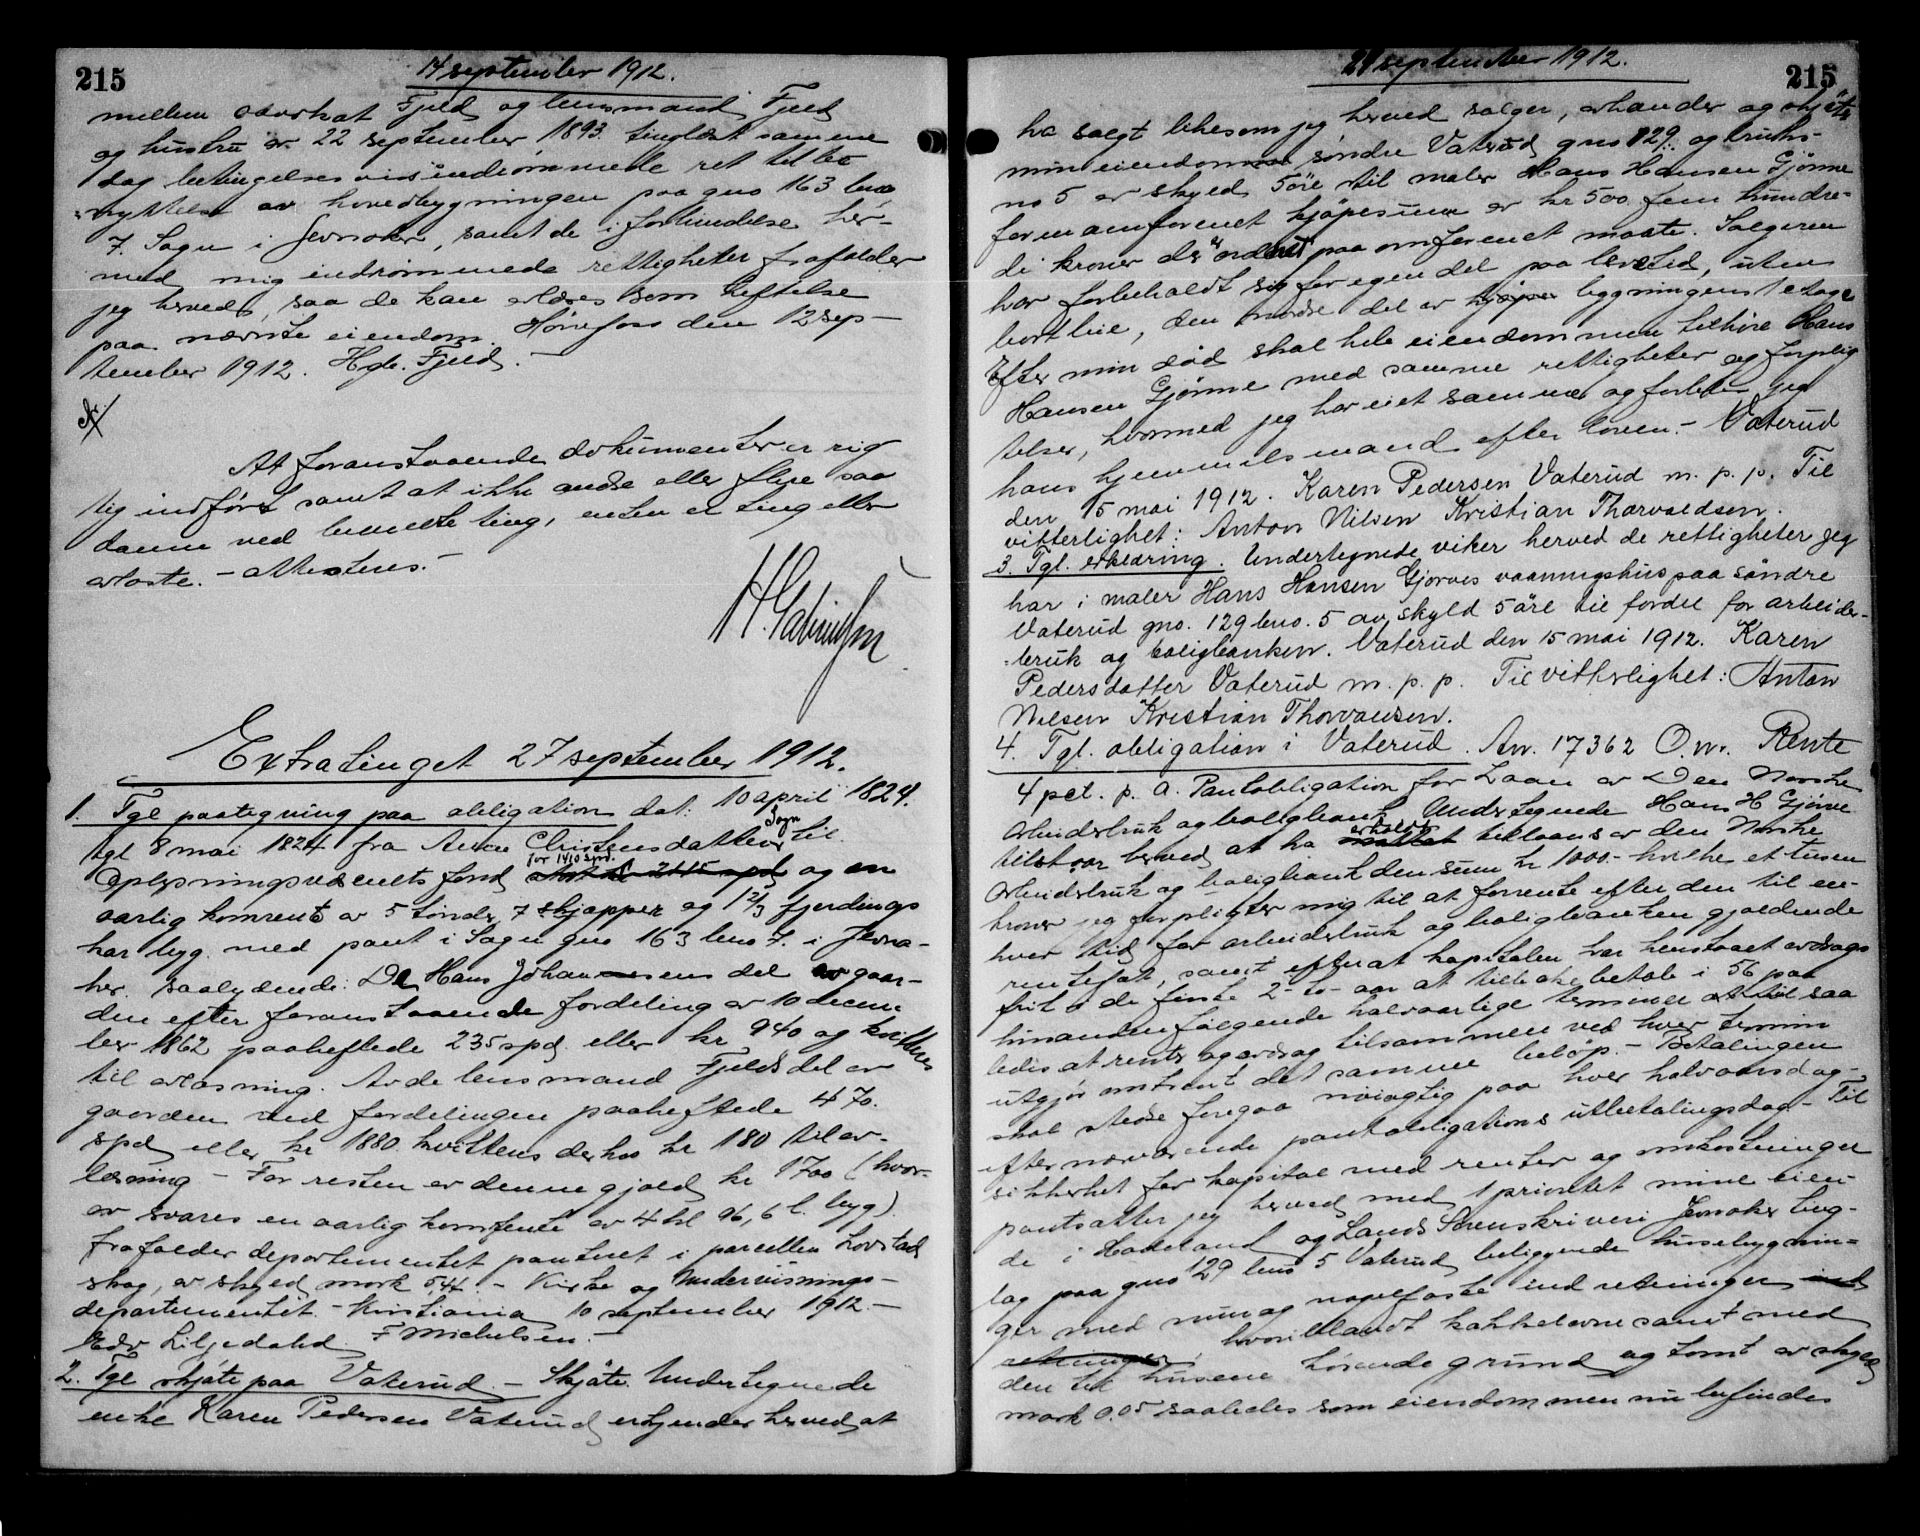 215
14 september 1912.
mellem advokat Fjeld og lensmand Fjeld
og hustru av 22 september 1893 tinglæst samme
dag betingelsesvis indrømmede ret til be
nyttelse av hovedbygningen paa gno 163 bno
7. Sogn i Jevnaker, samt de i forbindelse her-
med mig indrømmede rettigheter frafalder
jeg herved, saa de kan avlæses som heftelse
paa nævnte eiendom. Hönefoss den 12 sep-
tember 1912. Hgb. Fjeld. —
At foranstaaende dokumenter er rig
tig indført samt at ikke andre eller flere saa
danne ved benævnte ting, enten er ting eller
avlæste. — attesteres.
Extratinget 27 september 1912.
1. Tgl paategning paa obligation dat: 10 april 1824.
tgl 8 mai 1824 fra Anne Christensdatter Sogn til
Oplysningsvæsenets fond for 1410 spd. og en
aarlig kornrente av 5 tønder, 7 skjæpper og 1 2/3 fjerdings
kar byg. med pant i Sogn gno 163 bno 7. i Jevna-
ker. saalydende: De Hans Johannesens del av gaar-
den efter foranstaaende fordeling av 10 decem-
ber 1862 paaheftede 235 spd. eller kr 940 og kvitteres
til avlæsning. Av de lensmand Fjelds del av
gaarden ved fordelingen paaheftede 470.
spd eller kr 1880. kvitteres derhos kr 180 til av-
læsning — For resten av denne gjæld kr 1700 (hvor-
av svares en aarlig kornrente av 4 hl 96,6 l. byg)
frafalder departementet panteret i parcellen Lovstad
skog, av skyld mark 5,44. — Kirke og Undervisnings-
departementet. — Kristiania 10 september 1912 —
Edv Liljedahl. F Michelsen. —
2. Tgl skjøte paa Vaterud. — Skjøte. Undertegnede
enke Karen Pedersen Vaterud erkjender herved at
27 september 1912.
215
ha solgt likesom jeg herved sælger, avhænder og skjøter
min eiendom søndre Vaterud gno 129 og bruks-
no 5 av skyld 5 øre til maler Hans Hansen Gjönne
for en omforenet kjøpesum av kr 500. fem hundre-
de kroner der er ordnet paa omforenet maate. Sælgeren
har forbeholdt sig for egen del paa levetid, uten
bortleie, den nordre del av bygningens 1 etage
Efter min död skal hele eiendommen tilhøre Hans
Hansen Gjönne med samme rettigheter og forplig
telser, hvormed jeg har eiet samme og forblir jeg
hans hjemmelsmand efter loven. — Vaterud
den 15 mai 1912. Karen Pedersen Vaterud m. p. p. Til
vitterlighet: Anton Nilsen Kristian Thorvaldsen.
3. Tgl. erklæring. Undertegnede viker herved de rettigheter jeg
har i maler Hans Hansen Gjørves vaaningshus paa søndre
Vaterud gno. 129 bno. 5 av skyld 5 øre til fordel for arbeider-
bruk og boligbanken. Vaterud den 15 mai 1912. Karen
Pedersdatter Vaterud m. p. p. Til vitterlighet: Anton
Nilsen Kristian Thorvaldsen.
4. Tgl. obligation i Vaterud. An. 17362 O. nr. Rente
4 pct. p. a. Pantobligation for Laan av Den Norske
Arbeiderbruk og boligbank. Undertegnede Hans H Gjönne
tilstaar herved at ha erholdt tillaans av den Norske
Arbeiderbruk og boligbank den sum kr 1000.— hvilke et tusen
kroner jeg forpligter mig til at forrente efter den til en-
hver tid for arbeiderbruk og boligbanken gjældende
rentefot, samt efterat kapitalen har henstaaet avdrags
frit i de første 2 - to - aar at tilbakebetale i 56 paa
hinanden følgende halvaarlige terminer at til saa
ledes at rente og avdrag tilsammen ved hver termin
utgjør omtrent det samme beløp. — Betalingen
skal stedse foregaa nøiagtig paa hver halvaarsdag
efter nærværende pantobligations utbetalingsdag — Til
sikkerhet for kapital med renter og omkostninger
pantsætter jeg herved med 1 prioritet min eien-
de i Hadeland og Lands Sorenskriveri Jevnaker ting-
lag paa gno 129 bno 5 Vaterud beliggende husebygnin-
ger med mur og nagelfaste indretninger
hvoriblandt kakkelovne samt med
den til husene hørende grund og tomt av skyld
mark 0.05 saaledes som eiendommen nu befindes